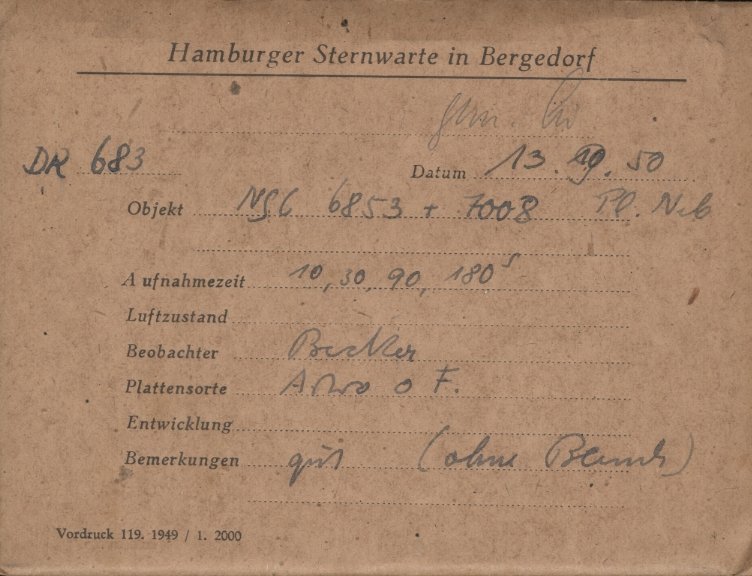 Hamburger Sternwarte in Bergedorf
DR 683
Datum 13. 10. 50
Objekt NGC 6853 + 7008 Pl. Neb
Aufnahmezeit 10, 30, 90, 180s
Luftzustand
Beobachter Becker
Plattensorte Astro o F.
Entwicklung
Bemerkungen gut (ohne
Vordruck 119. 1949 / 1. 2000